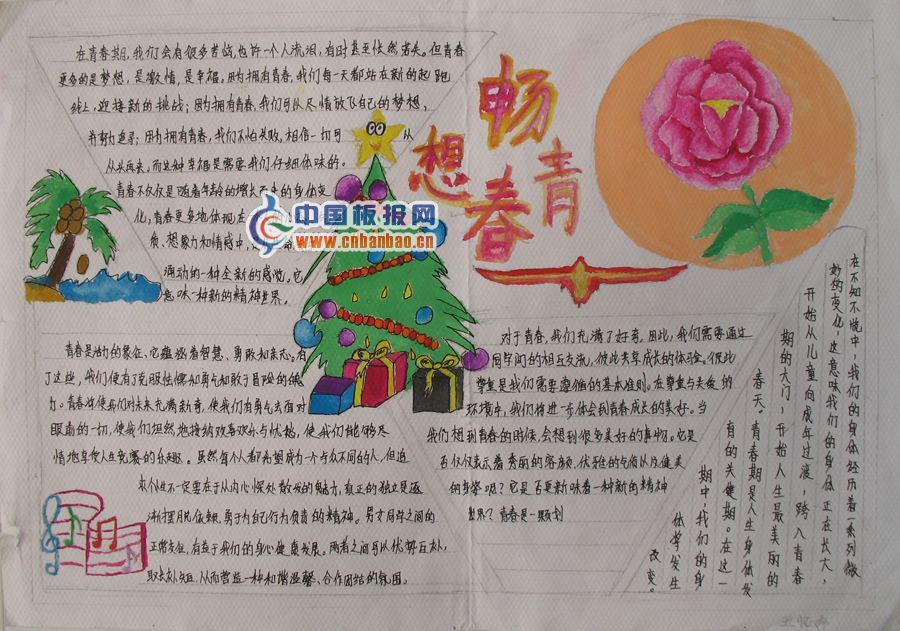 畅想青春
在青春期,我们会有很多苦恼,也许一个人流泪,有时甚至怅然若失。但青春
更多的是梦想,是激情,是幸福,因为拥有青春,我们每一天都站在新的起跑
线上,迎接新的挑战;因为拥有青春,我们可以尽情放飞自己的梦想,
并努力追寻;因为拥有青春,我们不怕失败,相信一切可从
从头再来。而这种幸福是需要我们仔细体味的。
青春不仅仅是随着年龄的增长而来的身体变
化,青春更多地体现在
质、想象力和情感中,
涌动的一种全新的感觉。它
意味一种新的精神世界。
中国板报网
www.cnbanbao.cn
青春是活力的象征,它蕴涵着智慧、勇敢和亲心。有
了这些,我们便有了克服性懦和勇气和敢于冒险的
行。青春将使我们对未来充满新奇,使我们有勇气去面对
眼前的一切,使我们坦然地接纳欢喜欢乐与忧愁,使我们能够尽
情地享受人生竞赛的乐趣。虽然每个人都希望成为一个与众不同的人,但追
求个性不一定要在于从内心深处散发的魅力,真正的独立是逐
渐摆脱依赖,勇于为自己行为负责的精神。男女同学之间的
正常交往,有益于我们的身心健康发展。两者之间可以优势互补,
取长补短,从而营造一种和谐温馨、合作团结的氛围。
对于青春,我们充满了好奇。因此,我们需要通过
同学间的相互交流,彼此共享成长的体验。彼此
尊重是我们需要遵循的基本准则。在尊重与关爱的
环境中,我们将进一步体会到青春成长的美好。当
我们想到青春的时候,会想到很多美好的事物。它是
否仅仅表示着秀丽的容颜,优雅的气质以及健美
的身姿呢?它是否更新味着一种新的精神
世界?青春是一颗划
在不知不觉中,我们的身体经历着一系列微
妙的变化,这意味我们的身体正在长大,
开始从儿童向成年过渡,跨入青春
期的大门,开始人生最美丽的
春天。青春期是人生身体发
育的关健期。在这一
期中,我们的身
体学发生
改变。